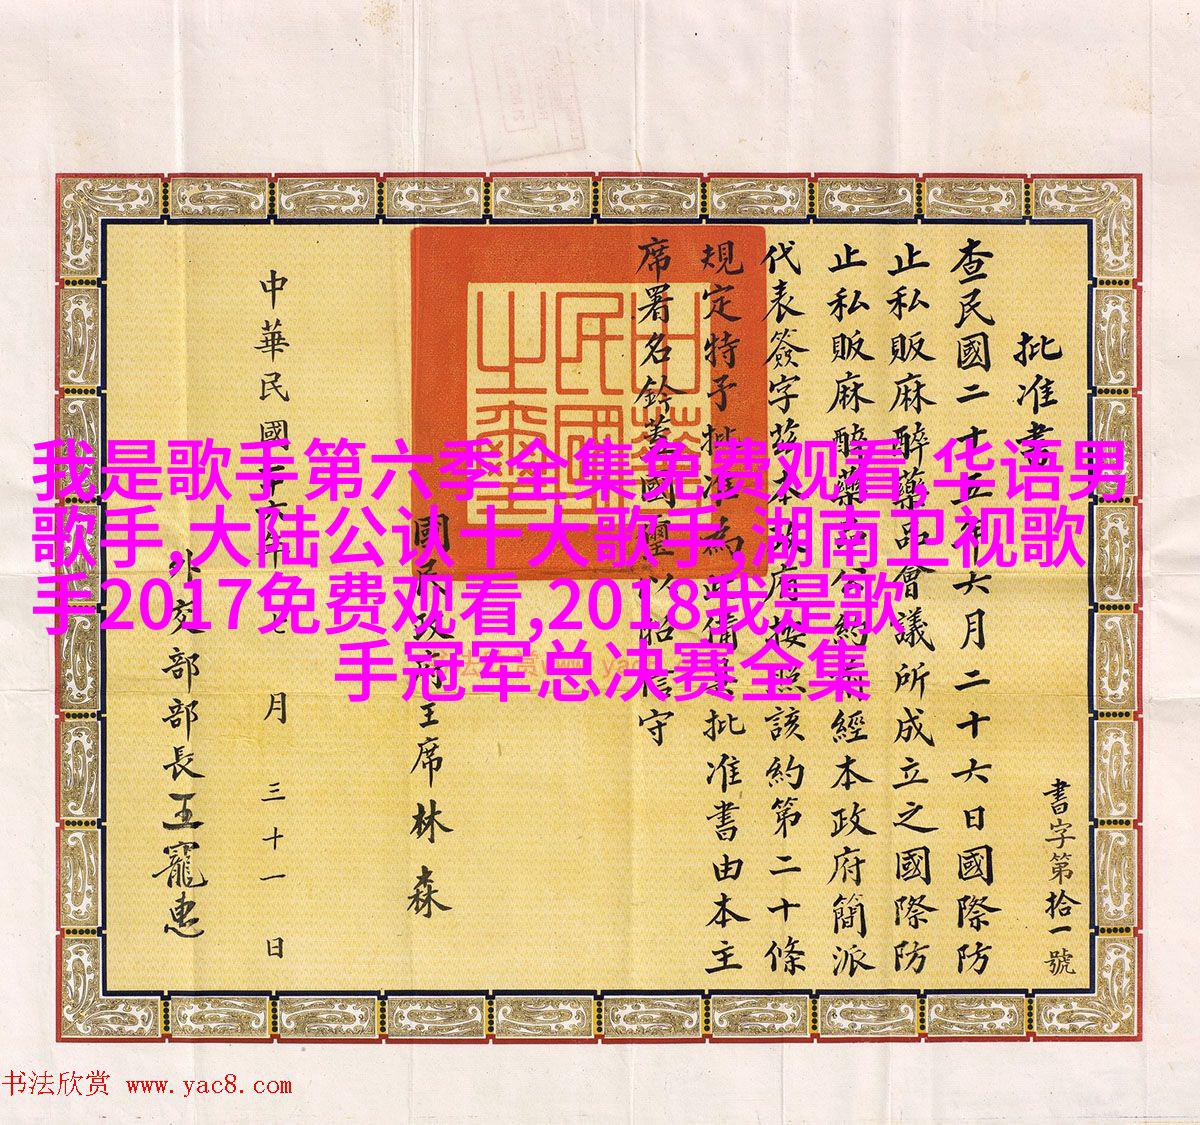 批准書
書字第拾一號
查民國二十五年六月二十六日國際防
止私販麻醉藥品會議所成立之國際防
止私販麻醉藥品公約業經本政府簡派
代表簽字茲本政府按照該約第二十條
規定特予批准為此備具批准書由本主
席署名鈐蓋國璽以昭信守
中華民國之璽
國民政府主席林森
中華民國二十六年七月三十一日
外交部部長王寵惠
我是歌手第六季全集免费观看,华语男
歌手,大陆公认十大歌手,湖南卫视歌
手2017免费观看,2018我是歌
手冠军总决赛全集
书法欣赏 www.yac8.com